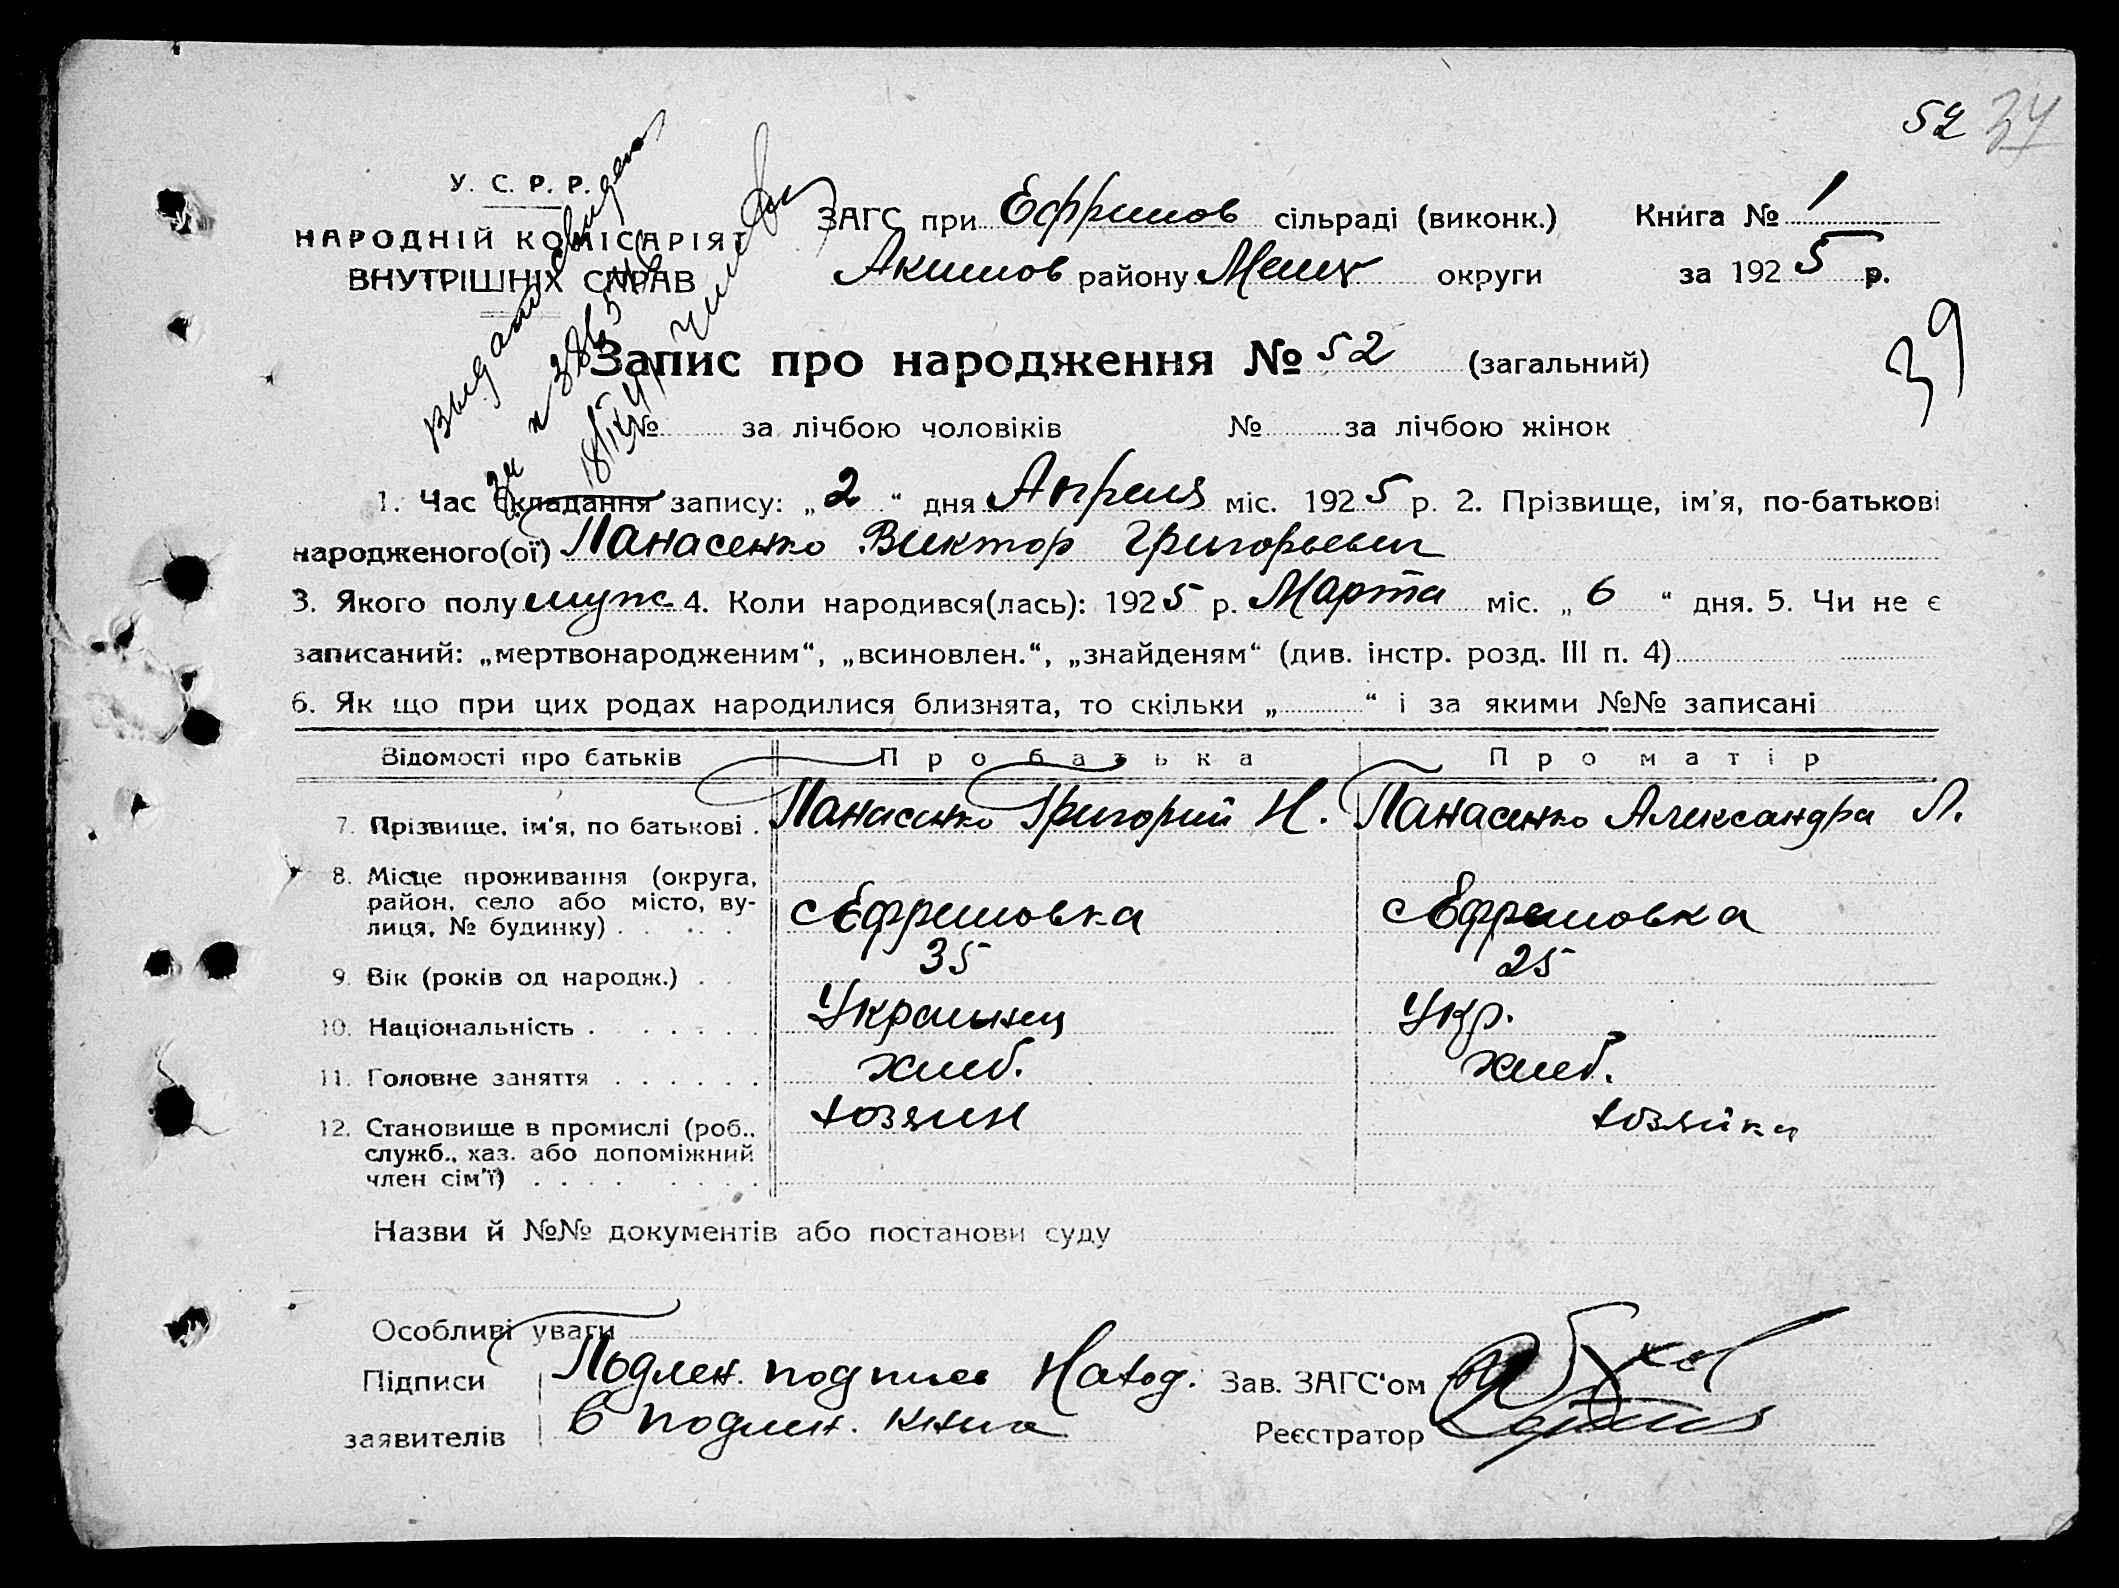 52 34
У. С. Р. Р.
НАРОДНІЙ КОМІСАРІЯТ
ВНУТРІШНІХ СПРАВ
ЗАГС при Ефримов сільраді (виконк.) Книга № 1
Акимов району Мелит округи за 1925 р.
39
Запис про народження № 52 (загальний)
№ за лічбою чоловіків № за лічбою жінок
1. Час складання запису: „2“ дня Апреля міс. 1925 р. 2. Прізвище, ім'я, по-батькові
народженого(ої) Панасенко Виктор Григорьевич
3. Якого полу мужс 4. Коли народився(лась): 1925 р. Марта міс. „6“ дня. 5. Чи не є
записаний: „мертвонародженим“, „всиновлен.“, „знайденям“ (див. інстр. розд. III п. 4)
6. Як що при цих родах народилися близнята, то скільки „ “ і за якими №№ записані
Відомості про батьків Про батька Про матір
7. Прізвище, ім'я, по батькові . Панасенко Григорий Н. Панасенко Александра Л.
8. Місце проживання (округа,
район, село або місто, ву-
лиця, № будинку) . . . . . с Ефремовка с Ефремовка
9. Вік (років од народж.) . . 35 25
10. Національність . . . . . . Украинец Укр.
11. Головне заняття . . . . . . хлеб. хлеб.
12. Становище в промислі (роб., хозяин хозяйка
служб., хаз. або допоміжний
член сім'ї) . . . . . . . .
Назви й №№ документів або постанови суду
Особливі уваги
Підписи Подлен. подписи Наход. Зав. ЗАГС'ом
заявителів в подлин. книга Реєстратор
выдано свидет